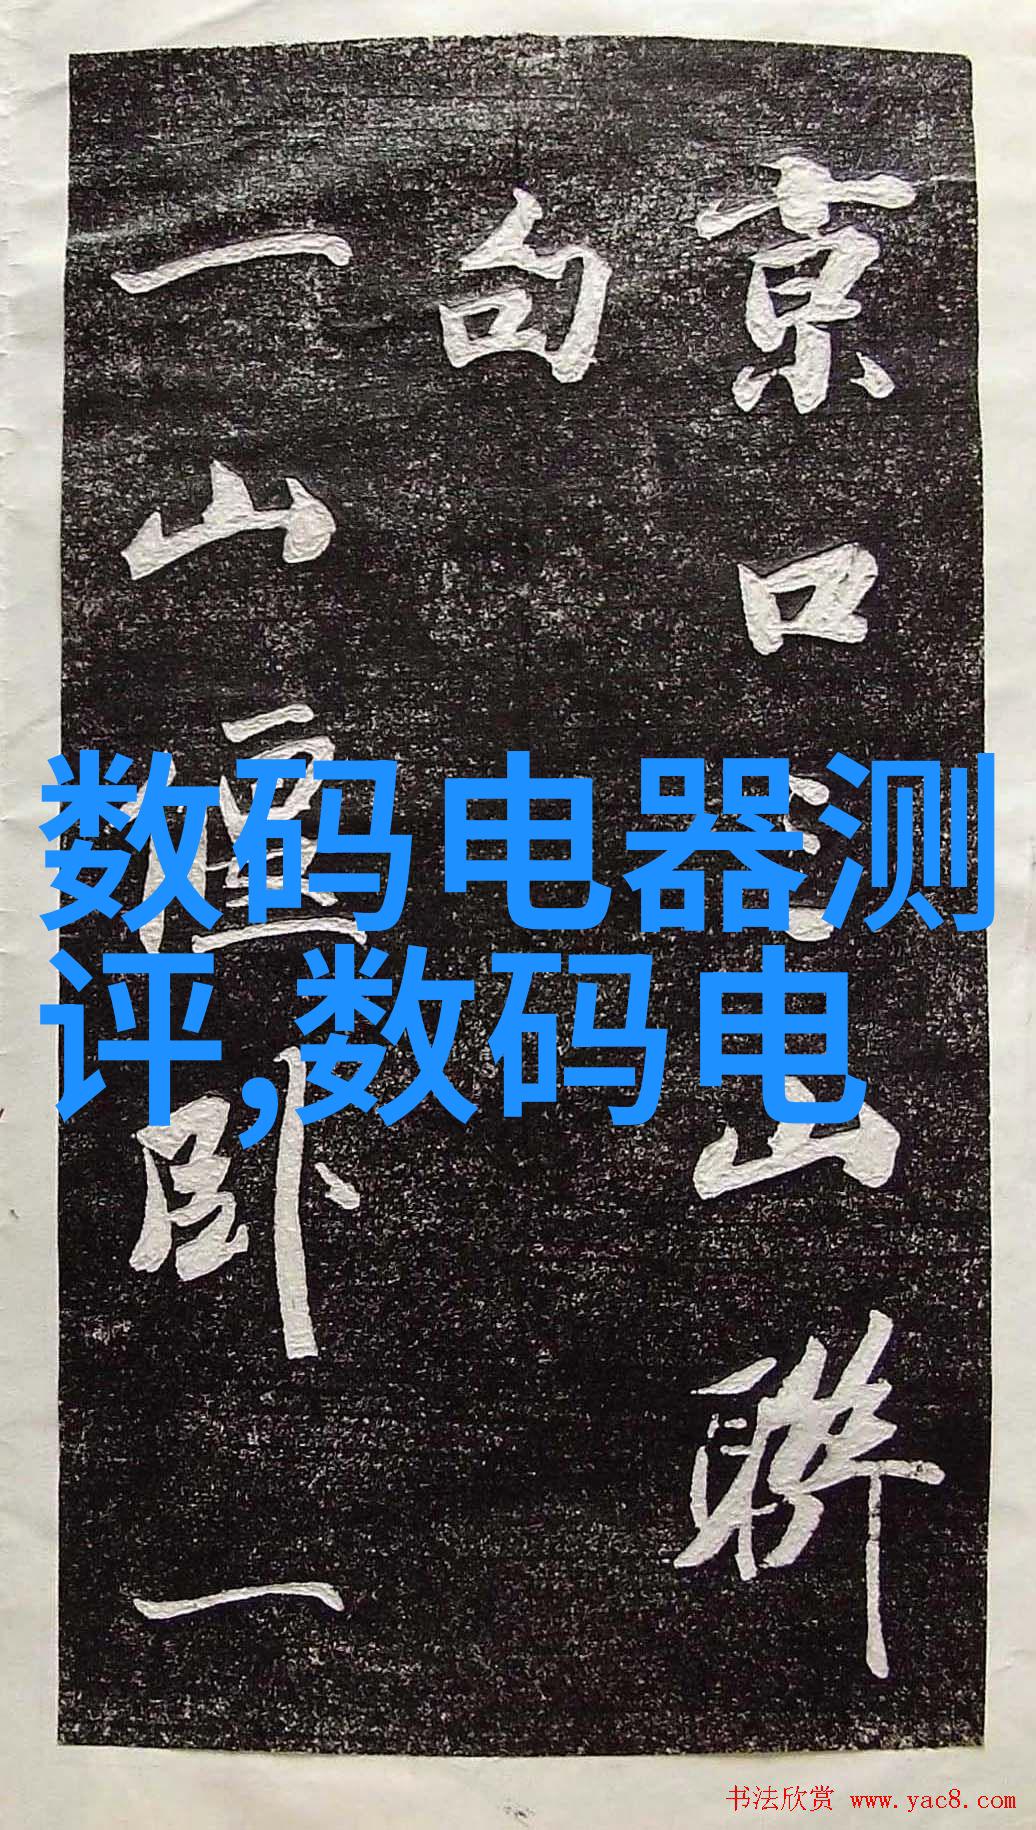 京口山聯
句
一山卧一
数码电器测
评,数码电
书法欣赏 www.yac8.com